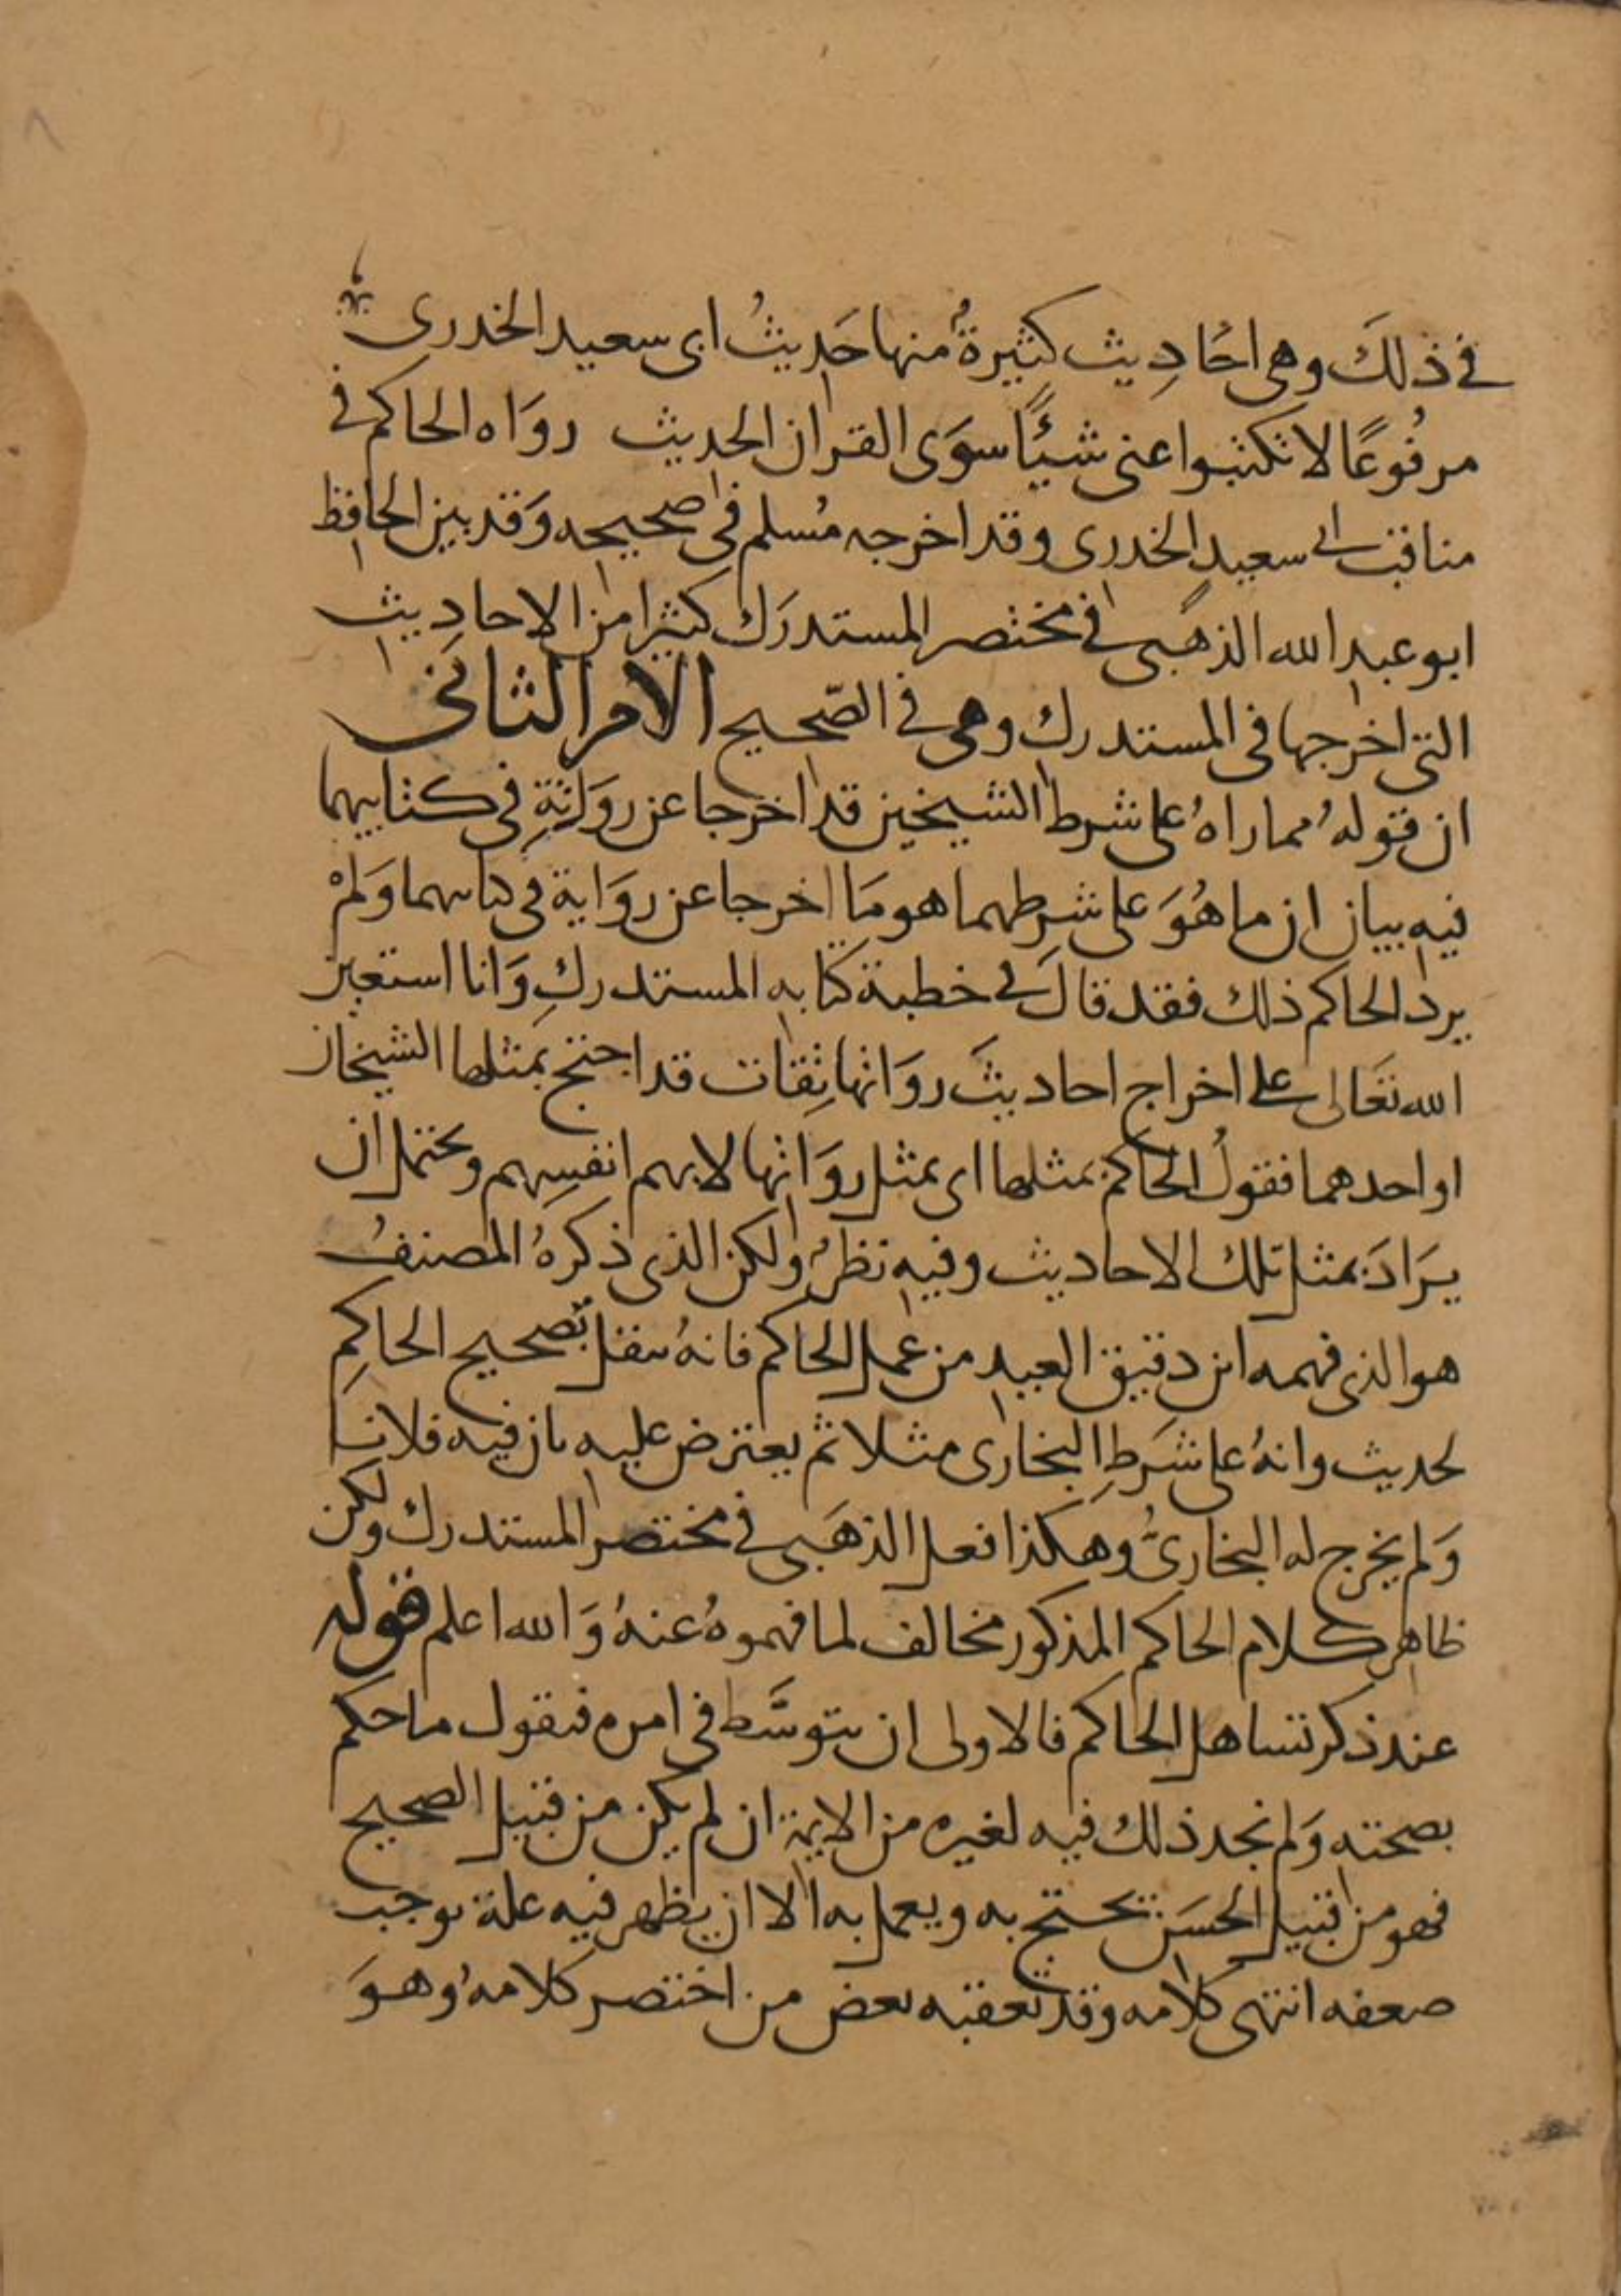 في ذلكَ وهى احَادِيث كثيرةٌ منها حَديثُ ابى سعيد الخدرى
مرفُوعًا لا تكتبوا عنى شئًا سوَى القران الحديث رواه الحاكم في
مناقب ابى سعيدٍ الخدرى وقد اخرجه مُسلم فى صحيحه وَقد بين الحافظ
ابو عبد الله الذهَبى في مختصر المستدرَك كثيرا من الاحادِيث
التى اخرجها فى المستدرك وهى في الصّحيح الامر الثانى
ان قولهُ مما راهُ على شرط الشيخين قد اخرجا عن روَاتِهِ فى كتابيهما
فيه بيان ان ما هُوَ على شرطهما هو مَا اخرجا عن روَاية فى كتابهما وَلمْ
يرد الحاكم ذلك فقد قالَ في خطبة كتابه المستدركِ وَانا استعين
الله تعَالى على اخراج احاديثَ روَاتها ثِقات قد احتج بمثلها الشيخان
او احدهما فقولُ الحاكم بمثلها اى بمثل روَاتها لا بهم انفسِهم ويحتمل ان
يرَادَ بمثل تلك الاحاديث وفيه نظرٌ ولكن الذى ذكرهُ المصنفُ
هو الذى فهمه ابن دقيق العيد من عمل الحاكم فانهُ ينقل تصحيح الحاكمِ
لحديث وانهُ على شرَطِ البخارى مثلا ثم يعترض عليه بان فيه فلانا
وَلم يخرج له البخارىُّ وهكذا فعل الذهَبى في مختصر المستدرك ولكن
ظاهر كلام الحاكم المذكور مخالف لما فهموهُ عنهُ وَالله اعلم قوله
عند ذكر تساهل الحاكم فالاولى ان نتوسَّط فى امره فنقول ما حكم
بصحته وَلم نجد ذلك فيه لغيره من الايمة ان لم يكن من قبيل الصحيح
فهو من قبيل الحسَن يحتج به ويعمل به الا ان يظهر فيه علة توجب
ضعفه انتهى كلامه وقد تعقبه بعض من اختصر كلامهُ وهوَ